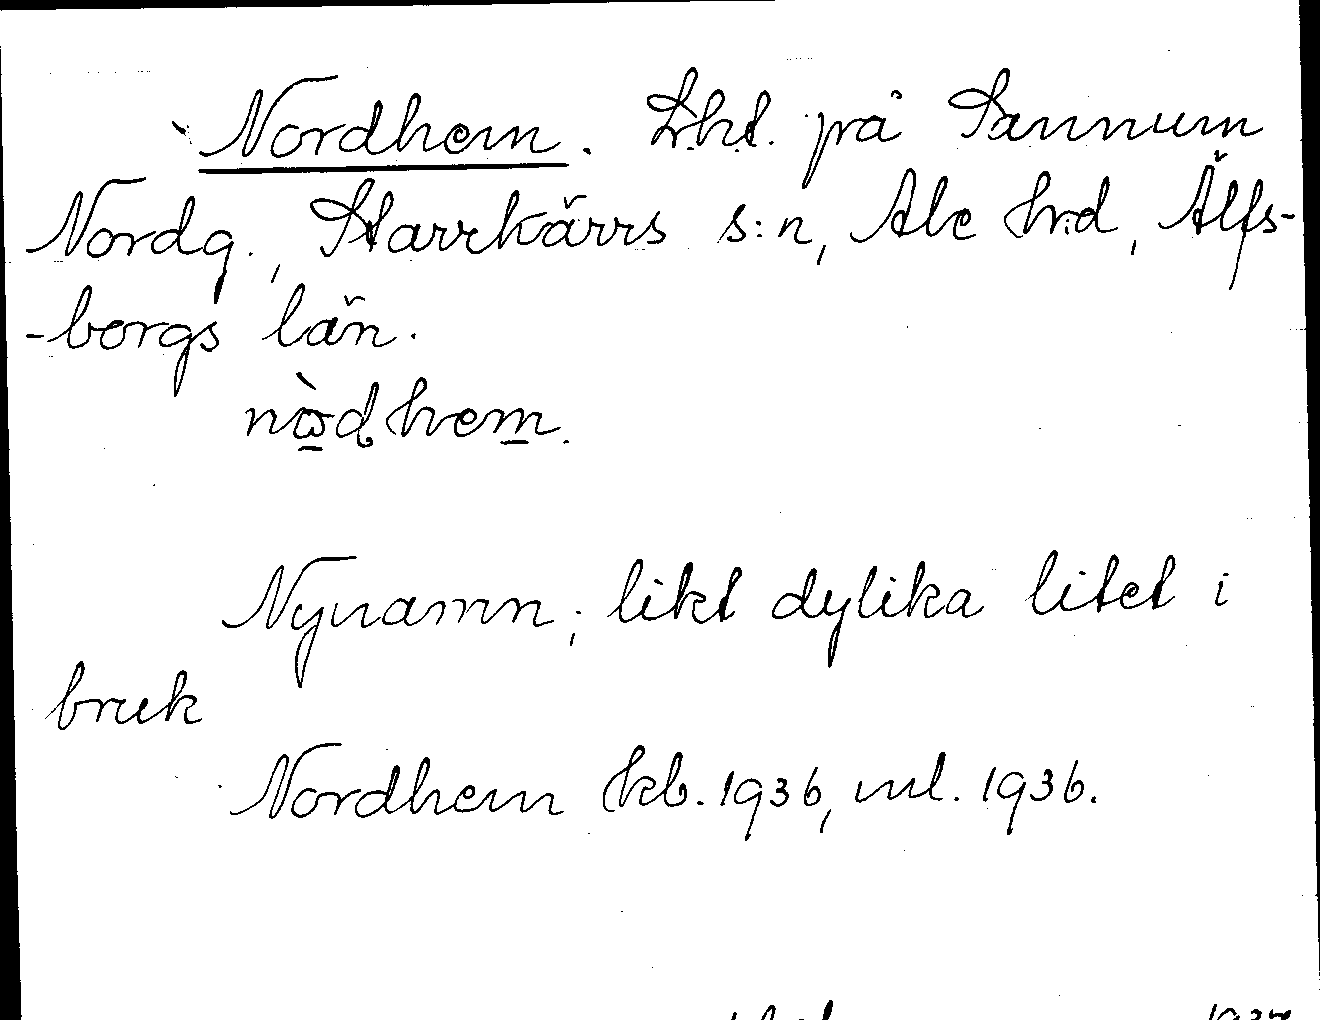 Nordhem. Lht. på Sannum
Nordg., Starrkärrs s:n, Ale hrd, Älfs-
-borgs län.
nὼdhem.
Nynamn; likt dylika litet i
bruk
Nordhem kb. 1936, ml. 1936.